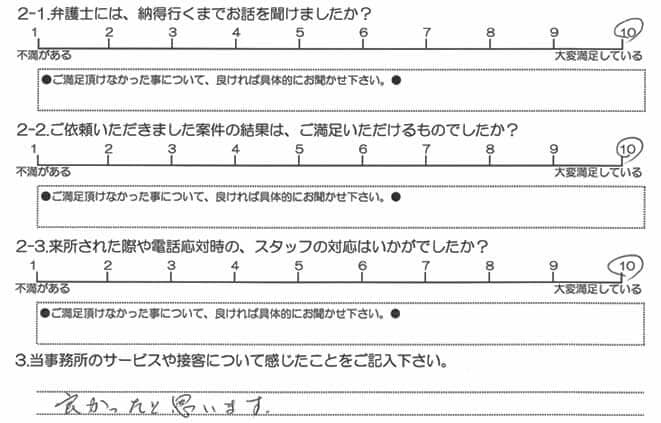 2-1.弁護士には、納得行くまでお話を聞けましたか？
1 2 3 4 5 6 7 8 9 10
不満がある 大変満足している
●ご満足頂けなかった事について、良ければ具体的にお聞かせ下さい。●
2-2.ご依頼いただきました案件の結果は、ご満足いただけるものでしたか？
1 2 3 4 5 6 7 8 9 10
不満がある 大変満足している
●ご満足頂けなかった事について、良ければ具体的にお聞かせ下さい。●
2-3.来所された際や電話応対時の、スタッフの対応はいかがでしたか？
1 2 3 4 5 6 7 8 9 10
不満がある 大変満足している
●ご満足頂けなかった事について、良ければ具体的にお聞かせ下さい。●
3.当事務所のサービスや接客について感じたことをご記入下さい。
良かったと思います.